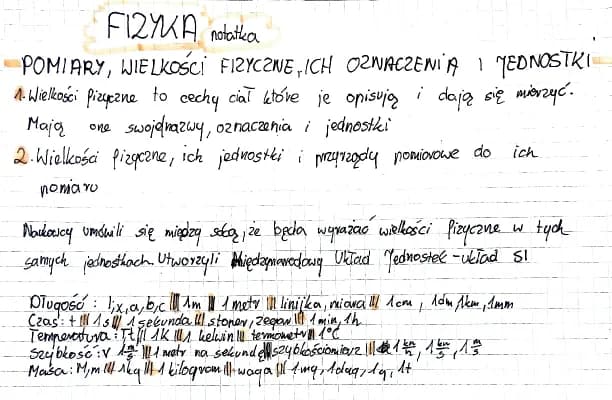 FIZYKA notatka
POMIARY, WIELKOŚCI FIZYCZNE, ICH OZNACZENIA I JEDNOSTKI
1. Wielkości fizyczne to cechy ciał które je opisują i dają się mierzyć.
Mają one swoje nazwy, oznaczenia i jednostki
2. Wielkości fizyczne, ich jednostki i przyrządy pomiarowe do ich
pomiaru
Naukowcy umówili się między sobą, że będą wyrażać wielkości fizyczne w tych
samych jednostkach. Utworzyli Międzynarodowy Układ Jednostek - układ SI
Długość: l, x, a, b, c ||| 1m ||| 1 metr ||| linijka, miara ||| 1cm, 1dm, 1km, 1mm
Czas: t ||| 1s ||| 1 sekunda ||| stoper, zegar ||| 1 min, 1h
Temperatura: T, t ||| 1K ||| 1 kelwin ||| termometr ||| 1°C
Szybkość: v ||| 1 m/s ||| 1 metr na sekundę ||| szybkościomierz ||| 1 km/h, 1 km/s, 1 m/s
Masa: M, m ||| 1kg ||| 1 kilogram ||| waga ||| 1mg, 1dag, 1g, 1t